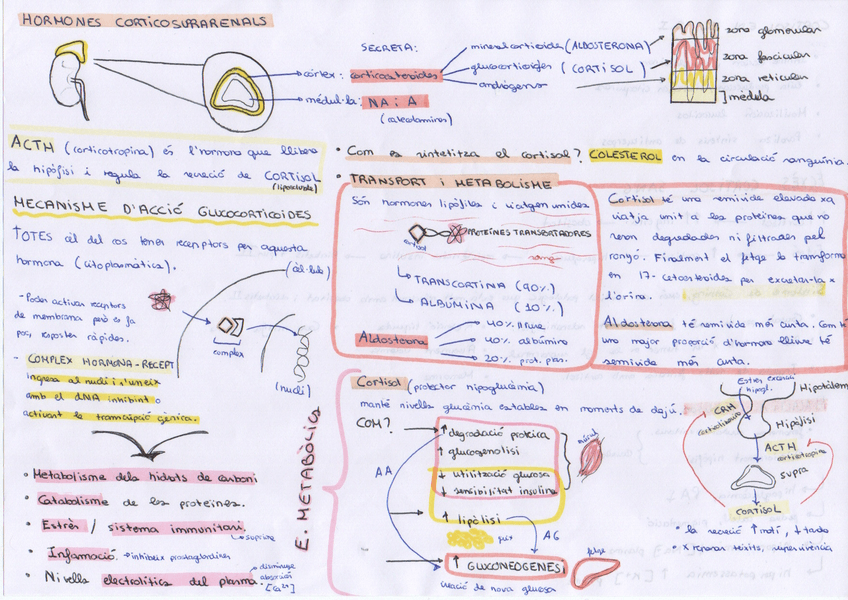 HORMONES CORTICOSUPRARENALS
SECRETA:
còrtex: corticosteroides
mèdul·la: NA i A
(catecolamines)
mineralcorticoides (ALDOSTERONA)
glucocorticoides (CORTISOL)
andrògens
zona glomerular
zona fascicular
zona reticular
mèdula
ACTH (corticotropina) és l'hormona que llibera
la hipòfisi i regula la secreció de CORTISOL
MECANISME D'ACCIÓ GLUCOCORTICOIDES
↑OTES cèl del cos tenen receptors per aquesta
hormona (citoplasmàtica).
- Poden activar receptors
de membrana però es fa
poc, respostes ràpides.
complex
(cèl·lula)
(nucli)
- COMPLEX HORMONA-RECEPT
ingresa al nucli i s'uneix
amb el DNA inhibint o
activant la transcipció gènica.
• Metabolisme dels hidrats de carboni
• Catabolisme de les proteïnes.
• Estrés / sistema immunitari.
suprimir
• Inflamació. → inhibeix prostaglandines
• Nivells electrolítics del plasma.
disminueix
absorció
[Ca²⁺]
• Com es sintetitza el cortisol? COLESTEROL en la circulació sanguínia.
• TRANSPORT i METABOLISME
Són hormones lipòfiles i viatgen unides
cortisol
PROTEÏNES TRANSPORTADORES
sang
TRANSCORTINA (90%)
ALBÚMINA (10%)
Aldosterona
40% lliure
40% albúmina
20% prot. plas.
Cortisol té una semivida elevada xa
viatja unit a les proteïnes que no
seran degradades ni filtrades pel
ronyó. Finalment el fetge lo transforma
en 17-cetosteroides per excretar-la x
l'orina.
Aldosterona té semivida més curta. Com té
una major proporció d'hormona lliure té
semivida més curta.
E. METABÒLICS
Cortisol (protector hipoglucèmia)
manté nivells glucèmia estables en moments de dejú.
COM?
AA
↑ degradació proteica
↑ glucogenolisi
↓ utilització glucosa
↓ sensibilitat insulina
múscul
↑ lipòlisi
greix
AG
↑ GLUCONEOGENESI
creació de nova glucosa
fetge
Hipotàlem
CRH
Hipòfisi
ACTH
corticotropina
SUPRA
CORTISOL
• la secreció ↑ matí, ↓ tarda